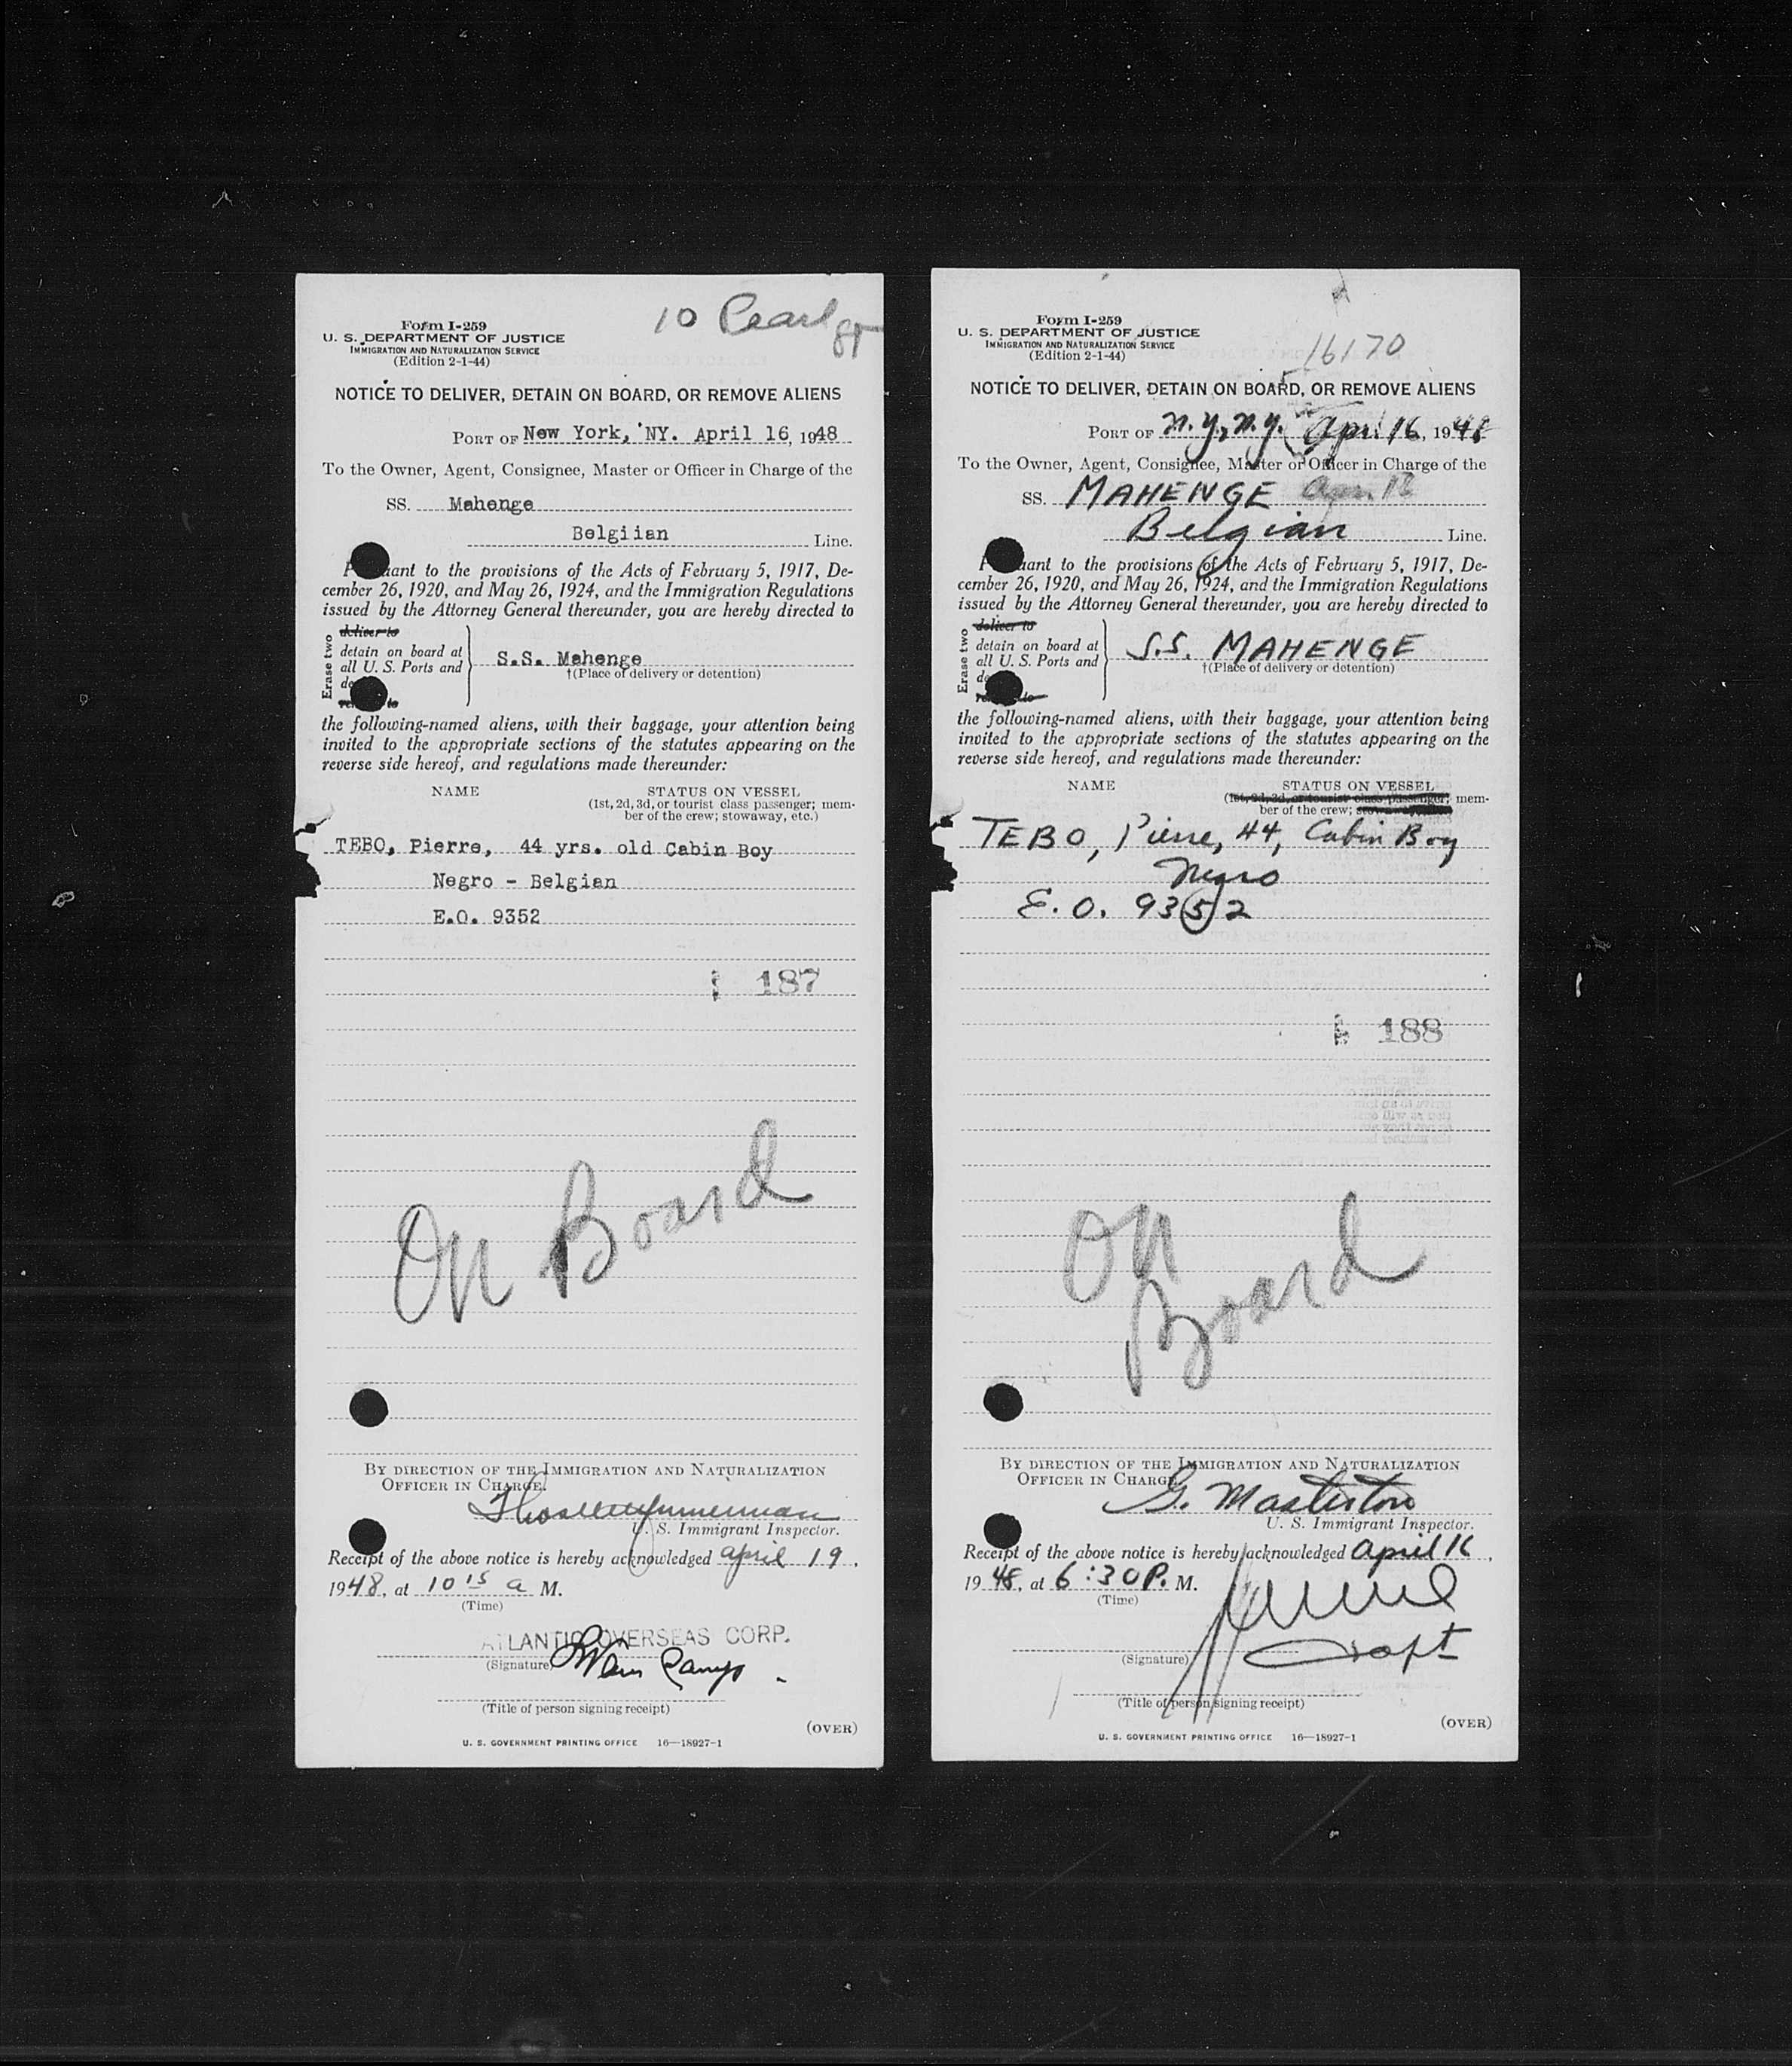 10 Pearl
Form I-259
U. S. DEPARTMENT OF JUSTICE
IMMIGRATION AND NATURALIZATION SERVICE
(Edition 2-1-44)
NOTICE TO DELIVER, DETAIN ON BOARD, OR REMOVE ALIENS
PORT OF New York, NY. April 16, 1948
To the Owner, Agent, Consignee, Master or Officer in Charge of the
SS. Mahenge
Belgiian Line.
to the provisions of the Acts of February 5, 1917, De-
cember 26, 1920, and May 26, 1924, and the Immigration Regulations
issued by the Attorney General thereunder, you are hereby directed to
Erase two
deliver to
detain on board at
all U. S. Ports and
S.S. Mahenge
†(Place of delivery or detention)
the following-named aliens, with their baggage, your attention being
invited to the appropriate sections of the statutes appearing on the
reverse side hereof, and regulations made thereunder:
NAME STATUS ON VESSEL
(1st, 2d, 3d, or tourist class passenger; mem-
ber of the crew; stowaway, etc.)
TEBO, Pierre, 44 yrs. old Cabin Boy
Negro - Belgian
E.O. 9352
187
On Board
BY DIRECTION OF THE IMMIGRATION AND NATURALIZATION
OFFICER IN CHARGE.
U. S. Immigrant Inspector.
Receipt of the above notice is hereby acknowledged April 19,
1948, at 10 15 a M.
(Time)
ATLANTIC OVERSEAS CORP.
(Signature)
(Title of person signing receipt)
(OVER)
U. S. GOVERNMENT PRINTING OFFICE 16—18927-1
Form I-259
U. S. DEPARTMENT OF JUSTICE
IMMIGRATION AND NATURALIZATION SERVICE
(Edition 2-1-44)
16170
NOTICE TO DELIVER, DETAIN ON BOARD, OR REMOVE ALIENS
PORT OF N.Y., N.Y. Apr. 16, 1948
To the Owner, Agent, Consignee, Master or Officer in Charge of the
SS. MAHENGE
Belgian Line.
to the provisions of the Acts of February 5, 1917, De-
cember 26, 1920, and May 26, 1924, and the Immigration Regulations
issued by the Attorney General thereunder, you are hereby directed to
Erase two
deliver to
detain on board at
all U. S. Ports and
S.S. MAHENGE
†(Place of delivery or detention)
the following-named aliens, with their baggage, your attention being
invited to the appropriate sections of the statutes appearing on the
reverse side hereof, and regulations made thereunder:
NAME STATUS ON VESSEL
(1st, 2d, 3d, or tourist class passenger; mem-
ber of the crew;
TEBO, Pierre, 44, Cabin Boy
Negro
E.O. 9352
188
On
Board
BY DIRECTION OF THE IMMIGRATION AND NATURALIZATION
OFFICER IN CHARGE.
G. Masterton
U. S. Immigrant Inspector.
Receipt of the above notice is hereby acknowledged April 16,
1948, at 6:30 P. M.
(Time)
(Signature)
Capt
(Title of person signing receipt)
(OVER)
U. S. GOVERNMENT PRINTING OFFICE 16—18927-1